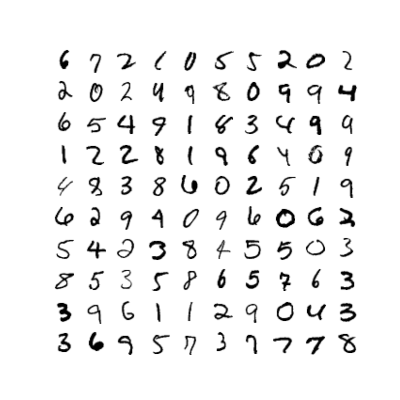 6 7 2 1 0 5 5 2 0 2
2 0 2 4 9 8 0 9 9 4
6 5 4 9 1 8 3 4 9 9
1 2 2 8 1 9 6 4 0 9
4 8 3 8 6 0 2 5 1 9
6 2 9 4 0 9 6 0 6 2
5 4 2 3 8 4 5 5 0 3
8 5 3 5 8 6 5 7 6 3
3 9 6 1 1 2 9 0 4 3
3 6 9 5 7 3 7 7 7 8